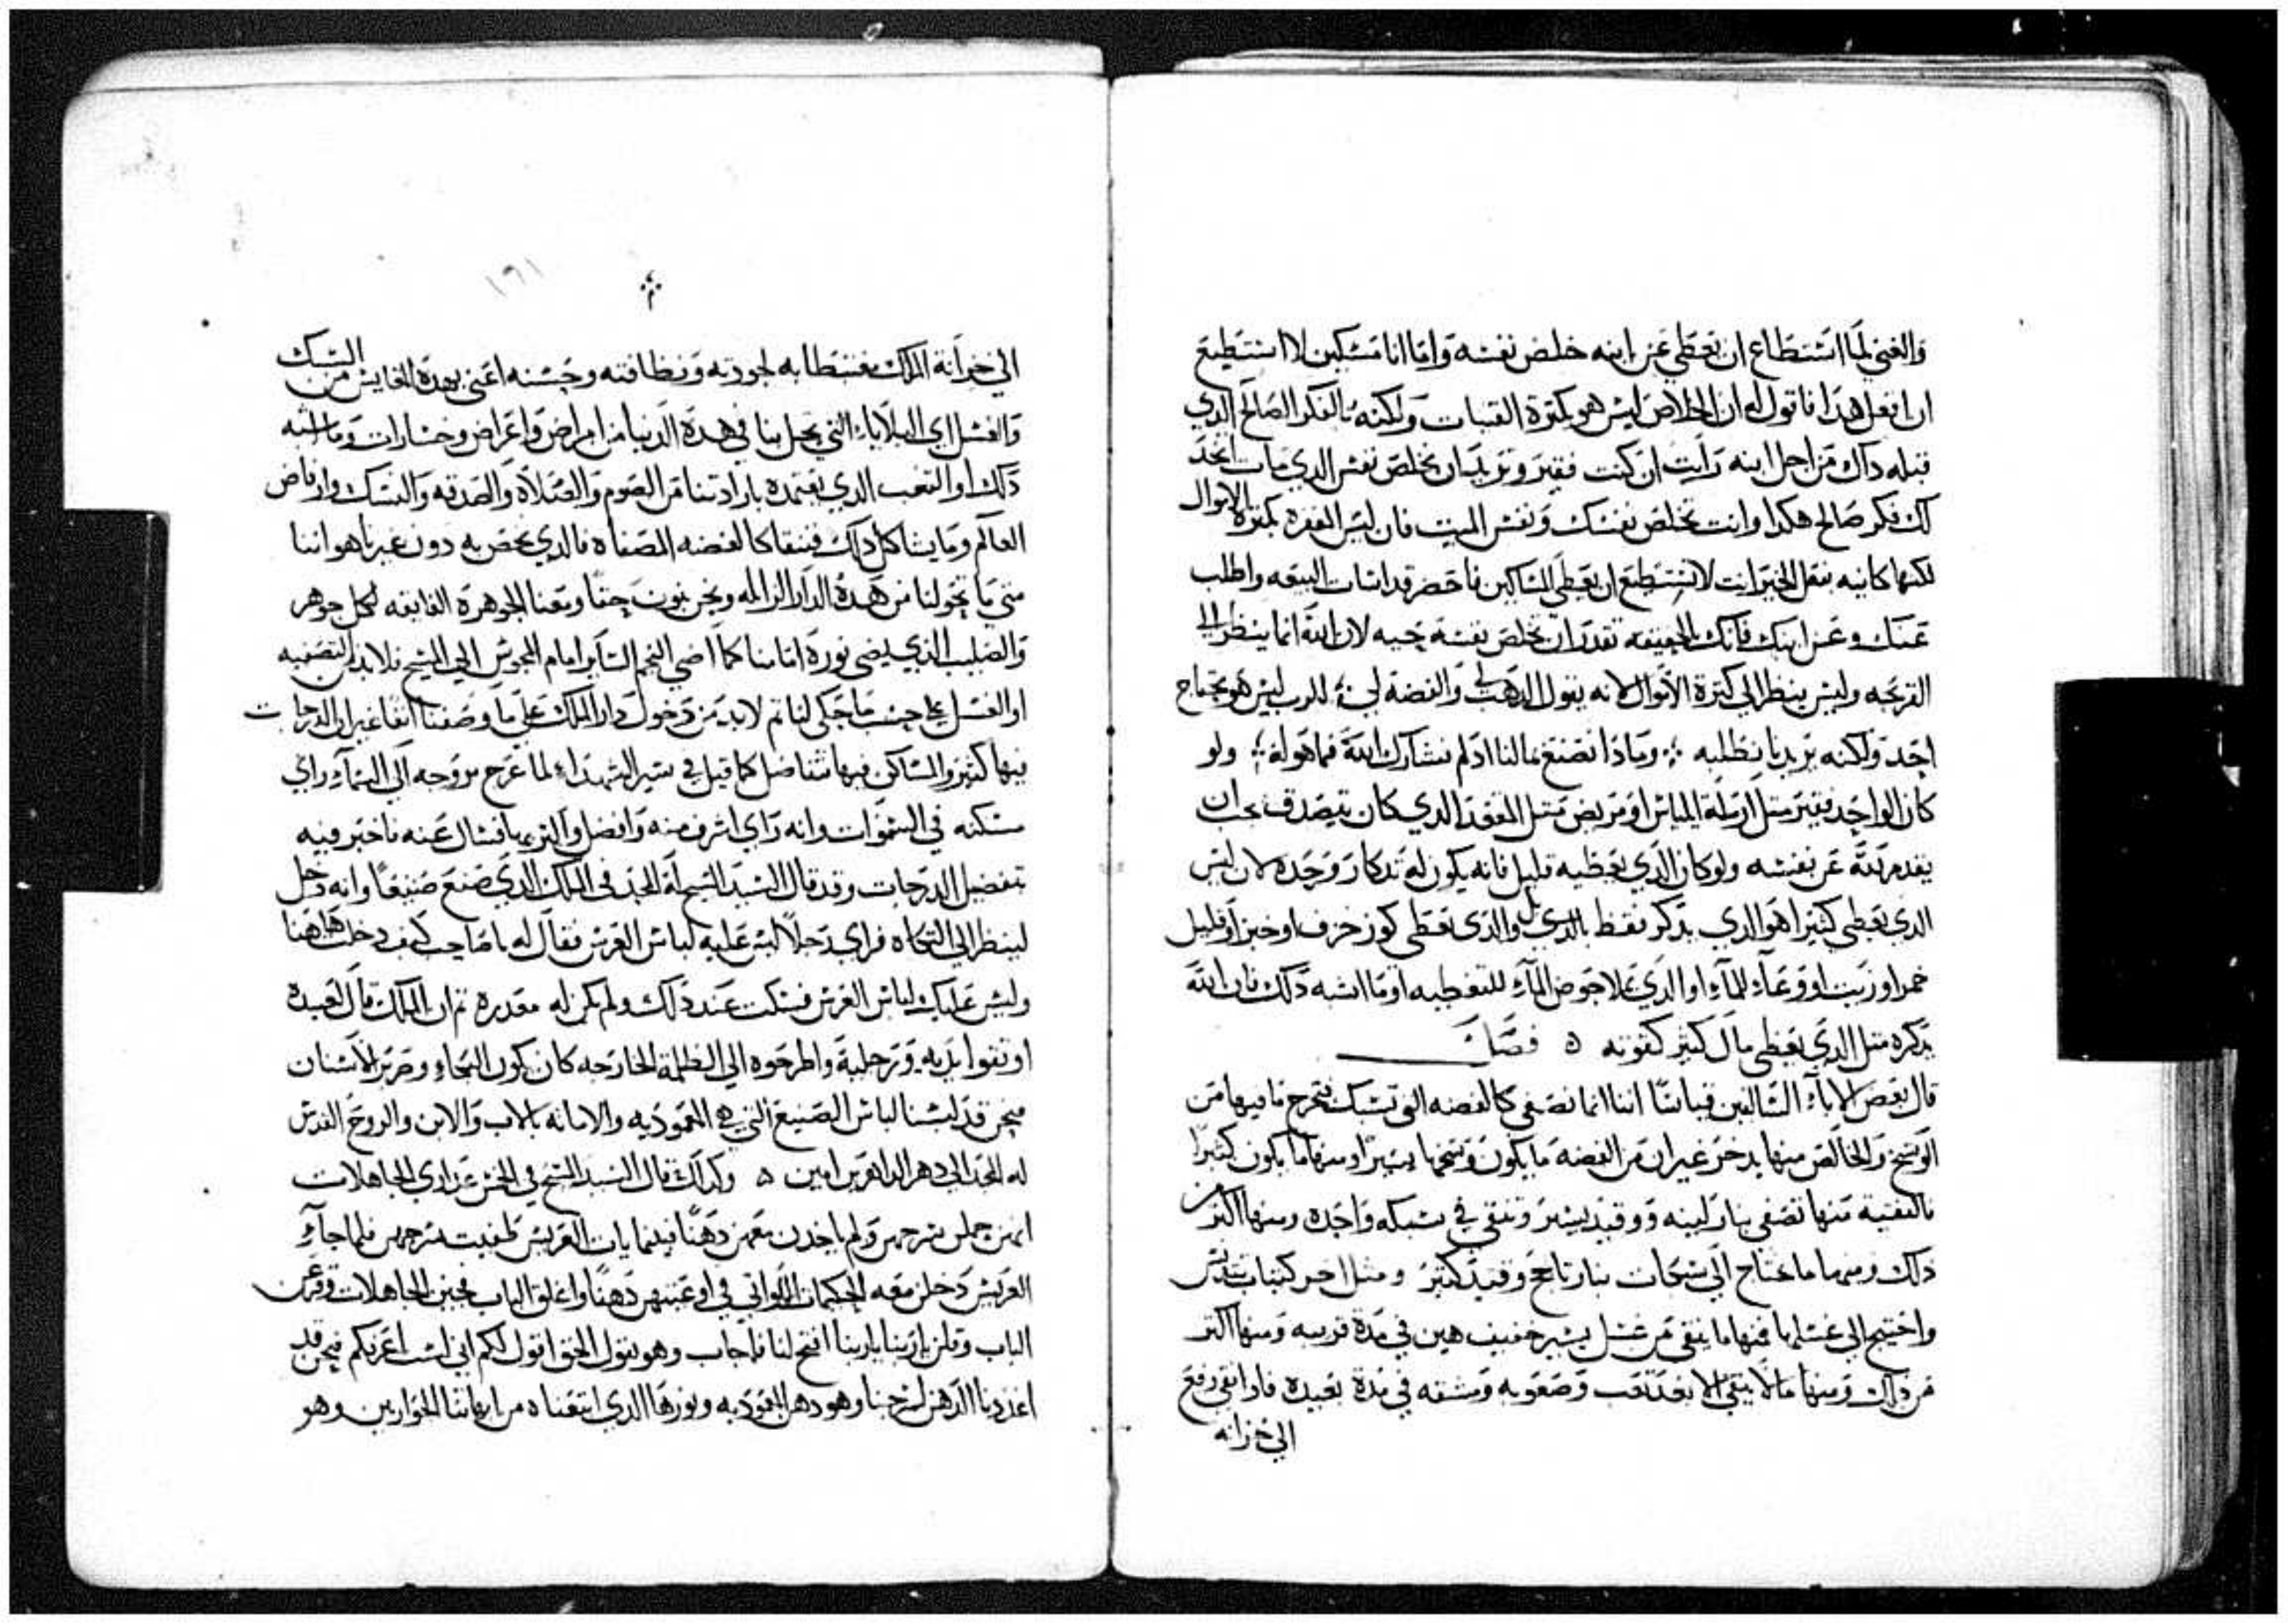 والغني لما استطاع ان يعطي عن ابنه خلص نفسه واما انا مسكين لا استطيع
ان افعل هدا فاقول له ان الخلاص ليس هو بكترة القنيات ولكنه بالفكر الصالح الدي
قبله داك من اجل ابنه رايت ان كنت فقير وتريد ان تخلص نفس الدي مات اتخد
لك فكر صالح هكدا وانت تخلص نفسك ونفس الميت فان ليس القدره بكترة الاموال
لكنها كاينه بفعل الخير انت لا تستطيع ان تعطي المساكين فاحضر قداسات البيعه واطلب
عنك وعن ابنك فانك بالحقيقه تقدر ان تخلص نفسه حيه لان الله انما ينظر الي
القريحه وليس ينظر الي كترة الاموال لانه يقول الدهب لي والفضه لي للرب ليس هو يحتاج
احد ولكنه يريد نا نطلبه وماذا نصنع بمالنا ادا لم نشارك الله فيما هو له ولو
كان الواحد فقير متل ارملة الميلاس او مريض متل المقعد الدي كان يتصدق يجب ان
يقدم لله عن نفسه ولو كان الدي يعطيه قليل فانه يكون له تدكار وحده لان ليس
الدي يعطي كتيرا هو الدي يدكر فقط بل والدي يعطي كوز خزف او خبز او قليل
خمر او زيت او وعاء للماء او الدي يملا حوض الماء للتعطيه او ما اشبه دلك فان الله
يدكره متل الدي يعطي مال كتير كقوته ه فصل
قال بعض الاباء السالفين قياسا اننا انما نصفي كالفضه التي تسبك فيخرج ما فيها من
الوسخ والخالص منها يدخر غير ان من الفضه ما يكون وسخها يسيرا ومنها ما يكون كتيرا
فالنقيه منها تصفي بنار لينه ووقيد يسير وتنقي في سبكه واحده ومنها اكتر من
دلك ومنها ما يحتاج الي سبكات بنار تاجج ووقيد كتير ومتل اخر كتياب تدنس
واحتيج الي غسلها فمنها ما ينقي من غسل يسير خفيف هين في مدة قريبه ومنها اكتر
من دلك ومنها ما لا ينقي الا بعد تعب وصعوبه ومشقه في مدة بعيده فادا نقي رفع
الي خزانه
١٦١
الي خزانة الملك مغتبطا به لجودته ونظافته وحسنه اعني بهدة المقايس من السبك
والغسل اي البلايا التي تحل بنا في هدة الدنيا من امراض واعراض وخسارات وما اشبه
دلك او التعب الدي نعتمده بارادتنا من الصوم والصلاة والصدقه والنسك وارفاض
العالم وما يشاكل دلك فننقا كالفضه المصفاه فالدي يخص به دون غيرنا هو اننا
متي ما تحولنا من هدة الدار الزايله ونحن نؤمن حقا ومعنا الجوهرة الفايقه لكل جوهر
والصليب الدي يضي نورة امامنا كما اضي النجم الساير امام المجوس الي المسيح فلا بد لتصفيه
او الغسل علي حسب ما حكي لنا تم لا بد من دخول دار الملك علي ما وصفنا انفا غير ان الدرجات
فيها كتيرو المساكن فيها تتفاضل كما قيل في سير الشهداء لما عرج بروحه الي السماء راي
مسكنه في السموات وانه راي اشرف منه وافضل واكتر بها فسال عنه فاخبر فيه
بتفضيل الدرجات وقد قال السيد المسيح له المجد في الملك الدي صنع صنيعا وانه دخل
لينظر الي المتكاه فراي رجلا ليس عليه لباس العرس فقال له يا صاحب كيف دخلت هاهنا
وليس عليك لباس العرس فسكت عند دلك ولم يكن له معدره تم ان الملك قال لعبيده
اوتقوا يديه ورجليه واطرحوه الي الظلمه الخارجه كان يكون البكاء وصرير الاسنان
فنحن قد لبسنا لباس الصنيع التي هي المعموديه والامانه بالاب والابن والروح القدس
له المجد الي دهر الداهرين امين ه وكدلك قال السيد المسيح في الخمس عداري الجاهلات
انهن حملن سرجهن ولم ياخدن معهن دهنا فبينما يات العريس طفيت سرجهن فلما جاء
العريس دخلن معه الحكيمات اللواتي في اوعيتهن دهنا واغلق الباب فجين الجاهلات وقرعن
الباب وقلن يا ربنا يا ربنا افتح لنا فاجاب وهو يقول الحق اقول لكم اني لست اعرفكم فنحن قد
اعددنا الدهن لسرجنا وهو دهن المعموديه ونورها الدي اتبعناه من ابهاتنا الحواريين وهو